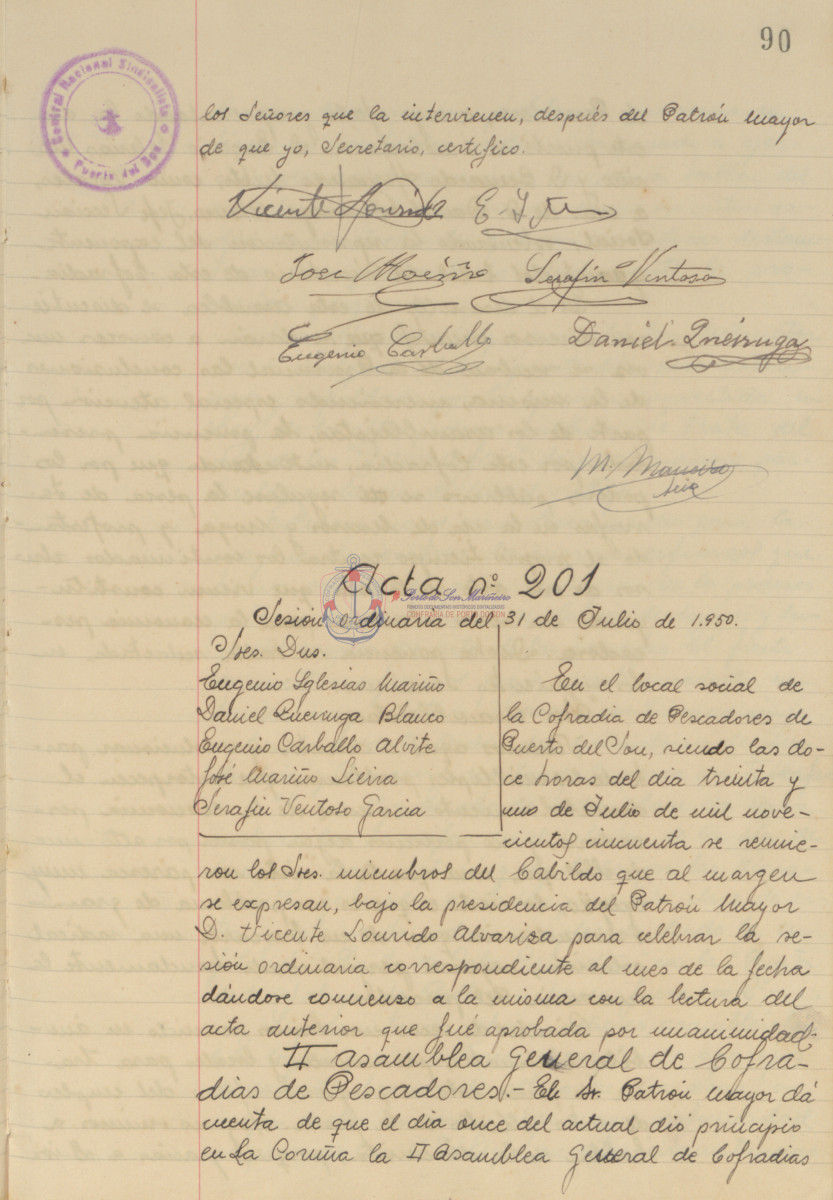 90
Central Nacional Sindicalista
Puerto del Son
los Señores que la intervienen, después del Patrón mayor
de que yo, Secretario, certifico.
Vicente Lourido
José Mariño Serafín Ventoso
Eugenio Carballo Daniel Queiruga
M.
Acta nº 201
Porto do Son Mariñeiro
FONDOS DOCUMENTAIS HISTÓRICOS DIXITALIZADOS
CONFRARÍA DE PORTO DO SON
Sesión ordinaria del 31 de Julio de 1.950.
Sres. Dns.
Eugenio Yglesias Mariño
Daniel Queiruga Blanco
Eugenio Carballo Alvite
José Mariño Sieira
Serafin Ventoso Garcia
En el local social de
la Cofradia de Pescadores de
Puerto del Son, siendo las do-
ce horas del dia treinta y
uno de Julio de mil nove-
cientos cincuenta se reunie-
ron los Sres. miembros del Cabildo que al margen
se expresan, bajo la presidencia del Patrón Mayor
D. Vicente Lourido Alvariza para celebrar la se-
sión ordinaria correspondiente al mes de la fecha
dándose comienzo a la misma con la lectura del
acta anterior que fué aprobada por unanimidad.
II Asamblea General de Cofra-
dias de Pescadores.- El Sr. Patrón mayor dá
cuenta de que el dia once del actual dió principio
en La Coruña la II Asamblea General de Cofradias